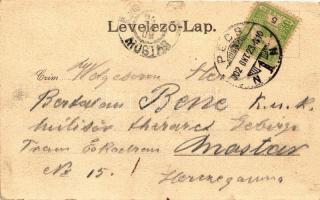 Levelező-Lap.
MOSTAR
PÉCS
902 OKT 23
N 1 N
5
Czim
Herrn
Bertalan Bene K.u.K.
militär thierarzt Gebirgs
Train Eskadron Mostar
No 15.!
Herczegowina